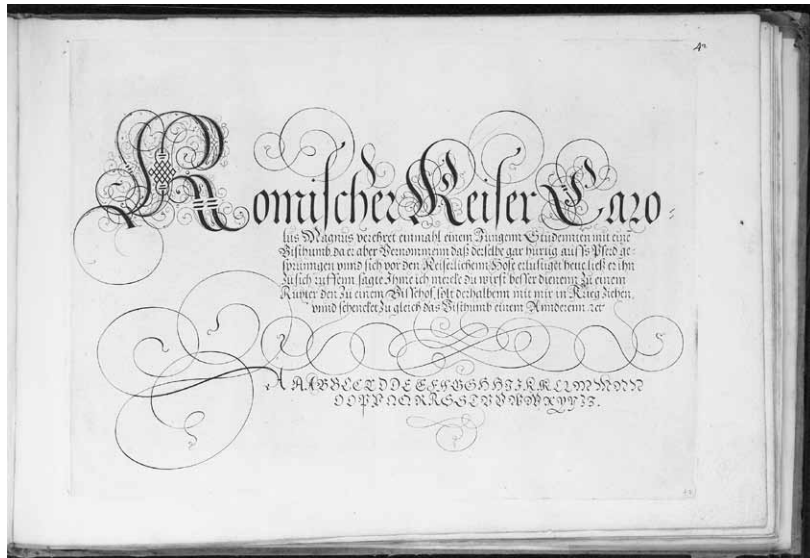 42
Romischer Keiser Caro=
lus Magnus verehret einmahl einem Jungenn Studennten mit einē
Bisthumb, da er aber Vernommenn daß derselbe gar hurtig auffs Pferd ge=
sprünngen vnnd sich vor den Keiserlichenn Hofe erlustiget hette, ließ er ihn
zu sich ruffenn, sagte Ihme ich mercke du wirst besser dienenn zu einem
Ruyter den zu einem Bisschof, solt derhalbenn mit mir in Krieg ziehen,
vnnd schencket zu gleich das Bisthumb einem Annderenn
A A A B B C C D D E E F G H H I K K L M M N N
O O P P Q Q R R S S T V V W W X Y Y Z Z.